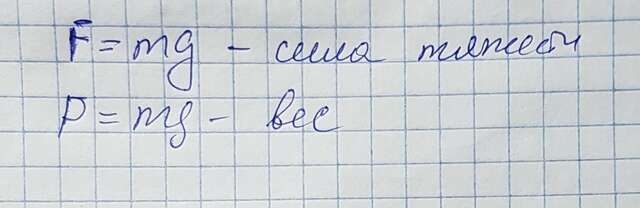 F = mg - сила тяжести
P = mg - вес